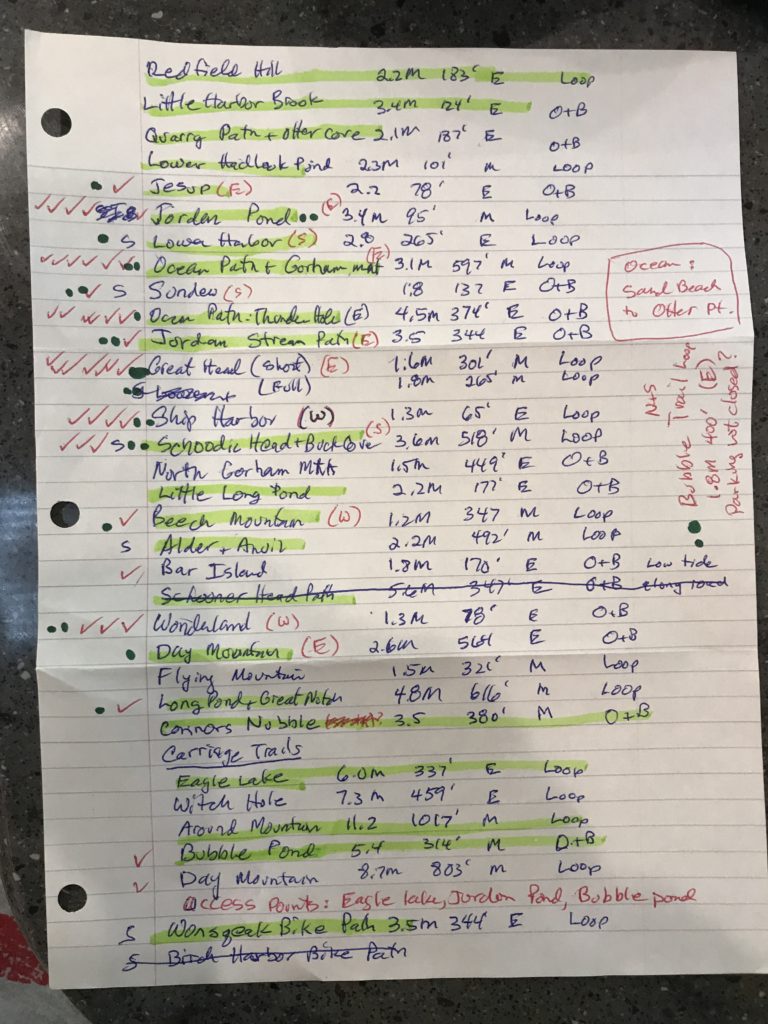 Redfield Hill 2.2M 183' E Loop
Little Harbor Brook 3.4M 124' E O+B
Quarry Path + Otter Cove 2.1M 187' E O+B
Lower Hadlock Pond 2.3M 101' M Loop
Jesup (E) 2.2 78' E O+B
Jordan Pond (E) 3.4M 95' M Loop
S Lower Harbor (S) 2.8 265' E Loop
Ocean Path + Gorham mnt (E) 3.1M 597' M Loop
S Sundew (S) 1.8 137 E O+B
Ocean Path: Thunder Hole (E) 4.5M 374' E O+B
Jordan Stream Path (E) 3.5 344 E O+B
Great Head (short) (E) 1.6M 301' M Loop
(Full) 1.8M 265' M Loop
Ship Harbor (W) 1.3M 65' E Loop
S Schoodic Head + Buck Cove (S) 3.6M 518' M Loop
North Gorham Mtn 1.5M 449' E O+B
Little Long Pond 2.2M 177' E O+B
Beech Mountain (W) 1.2M 347 M Loop
S Alder + Anvil 2.2M 492' M Loop
Bar Island 1.8M 170' E O+B Low tide
Schooner Head Path 5.6M 347' E O+B along road
Wonderland (W) 1.3M 78' E O+B
Day Mountain (E) 2.6M E O+B
Flying Mountain 1.5M 321' M Loop
Long Pond + Great Notch 4.8M 616' M Loop
Connors Nubble 3.5 380' M O+B
Carriage Trails
Eagle Lake 6.0M 337' E Loop
Witch Hole 7.3M 459' E Loop
Around Mountain 11.2 1017' M Loop
Bubble Pond 5.4 314' M O+B
Day Mountain 8.7M 803' M Loop
Access Points: Eagle lake, Jordon Pond, Bubble pond
S Wonsqeak Bike Path 3.5M 344' E Loop
S Birch Harbor Bike Path
Ocean:
Sand Beach
to Otter Pt.
N+S
Bubble Trail Loop
1.8M 400' (E)
Parking lot closed?